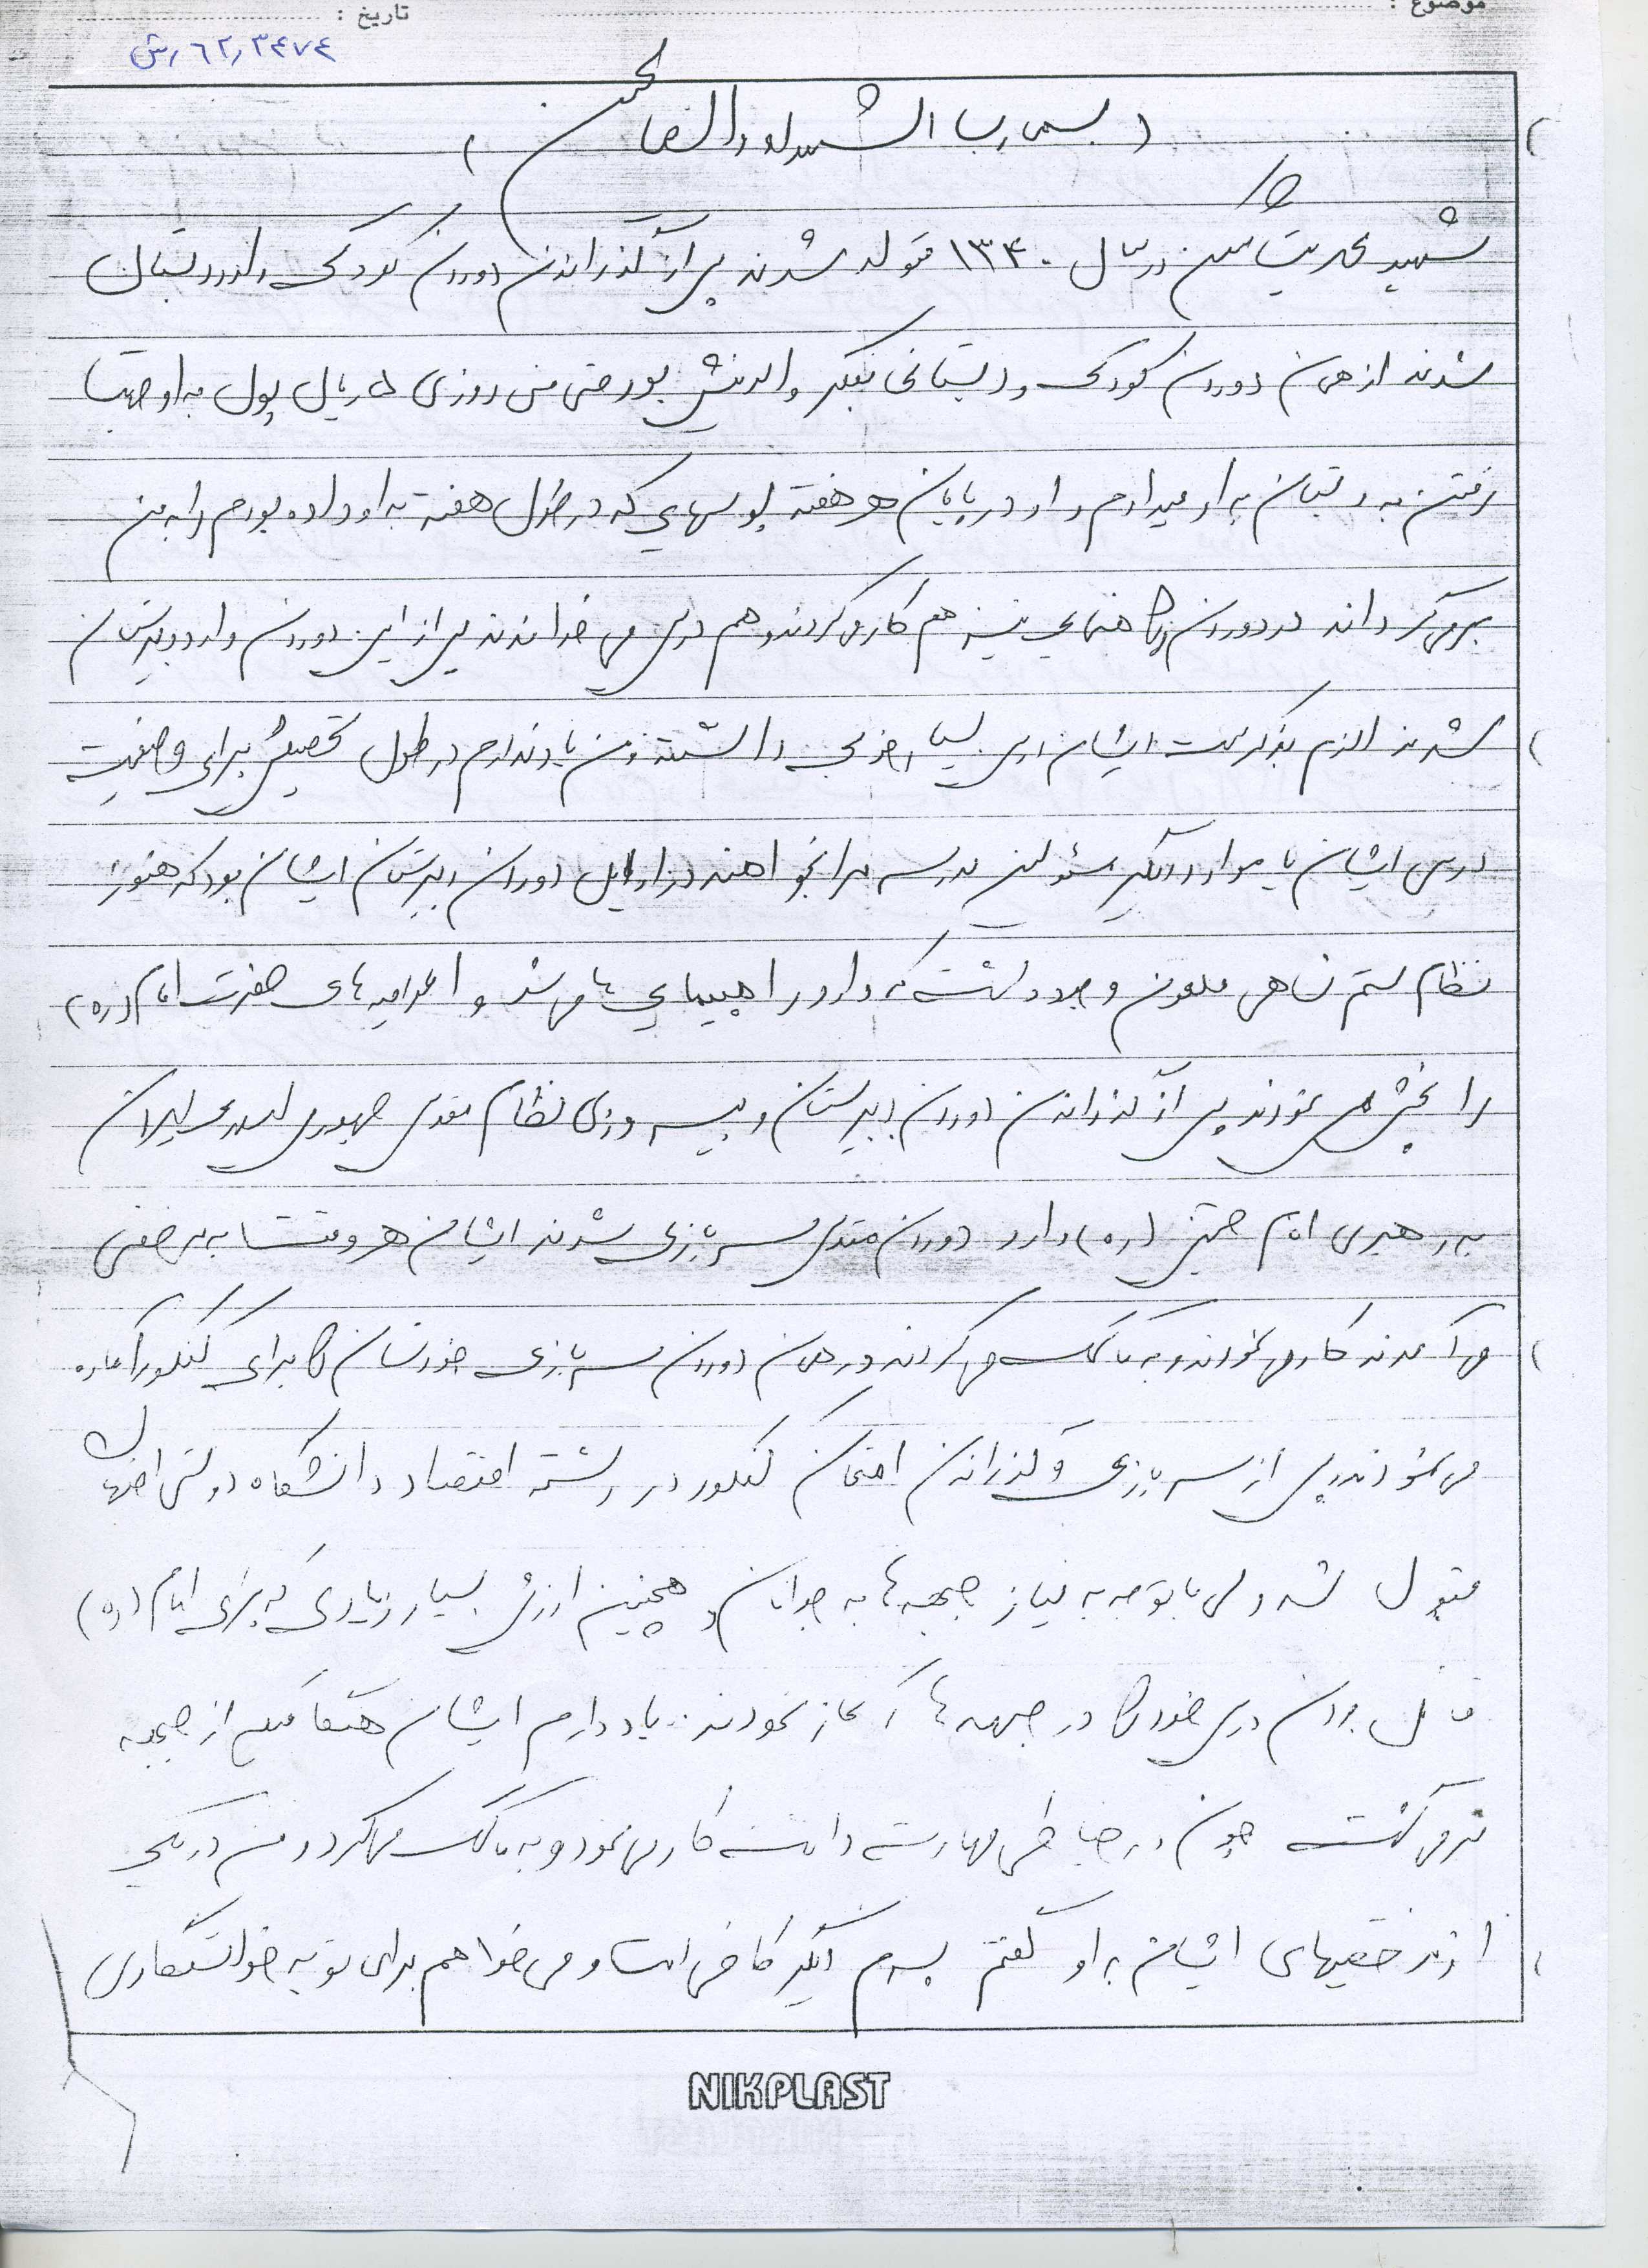 موضوع : تاریخ :
۶۲٫۳۴۷۴رش
( بسمه رب الشهداء والصالحین )
شهید در سال ۱۳۴۰ متولد شدند پس از گذراندن دوران کودکی وارد دبستان
شدند از همان دوران کودکی و دبستانی والدینش بود حتی من روزی ۵ ریال پول به او جهت
رفتن به دبستان به او میدادم و او در پایان هر هفته پولهایی که در طول هفته به او داده بودم را به من
برمی گرداند در دوران راهنمایی نیز هم کار می کردند و هم درس می خواندند پس از این دوران وارد دبیرستان
شدند لازم بذکر است ایشان درس بسیار خوبی داشتند و من یاد ندارم در طول تحصیلش برای وضعیت
درس ایشان یا موارد دیگر مسئولین مدرسه مرا بخواهند در اوایل دوران دبیرستان ایشان بود که هنوز
نظام ستم شاهی ملعون وجود داشت که وارد راهپیمایی ها می شد و اعلامیه های حضرت امام (ره)
را پخش می نمودند پس از گذراندن دوران دبیرستان و پیروزی نظام مقدس جمهوری اسلامی ایران
به رهبری امام خمینی (ره) وارد دوران مقدس سربازی شدند ایشان هر وقت به مرخصی
می آمدند کار می نمودند و به ما کمک می کردند و در همان دوران سربازی خودشان را برای کنکور آماده
می نمودند پس از سربازی و گذراندن امتحان کنکور در رشته اقتصاد دانشگاه دولتی اصفهان
قبول شد ولی با توجه به نیاز جبهه ها به جوانان و همچنین ارزش بسیار زیادی که برای امام (ره)
قائل بودن درس خود را در جبهه ها آغاز نمودند. یاد دارم ایشان هنگامی از جبهه
برمی گشت چون در خیاطی مهارت داشت کار می نمود و به ما کمک میکرد و من در یکی
از مرخصیهای ایشان به او گفتم پسرم دیگر کافی است و می خواهم برای تو به خواستگاری
NIKPLAST